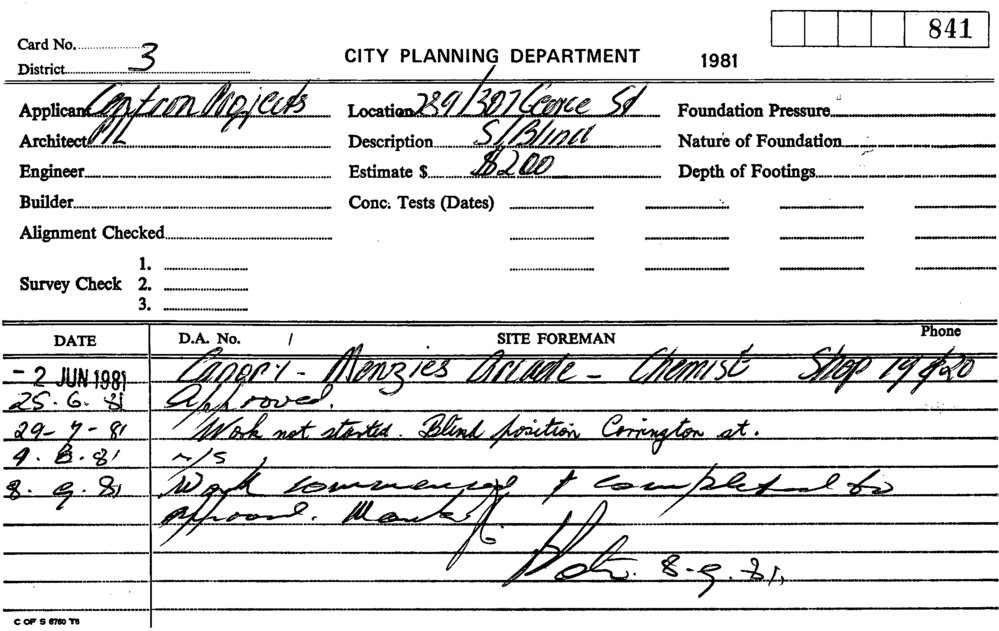 841
Card No.
District 3
CITY PLANNING DEPARTMENT 1981
Applicant Contron Projects Location 289/307 George St Foundation Pressure
Architect P/L Description S/Blind Nature of Foundation
Engineer Estimate $ $200 Depth of Footings
Builder Conc. Tests (Dates)
Alignment Checked
1.
Survey Check 2.
3.
DATE D.A. No. / SITE FOREMAN Phone
- 2 JUN 1981 Canopy - Menzies Arcade - Chemist Shop 19 & 20
25. 6. 81 Approved.
29- 7- 81 Work not started. Blind position Carrington st.
4. 8. 81 n/s
8. 9. 81 Work commenced & completed to
approval.
8. 9. 81.
C OF S 6760 T5